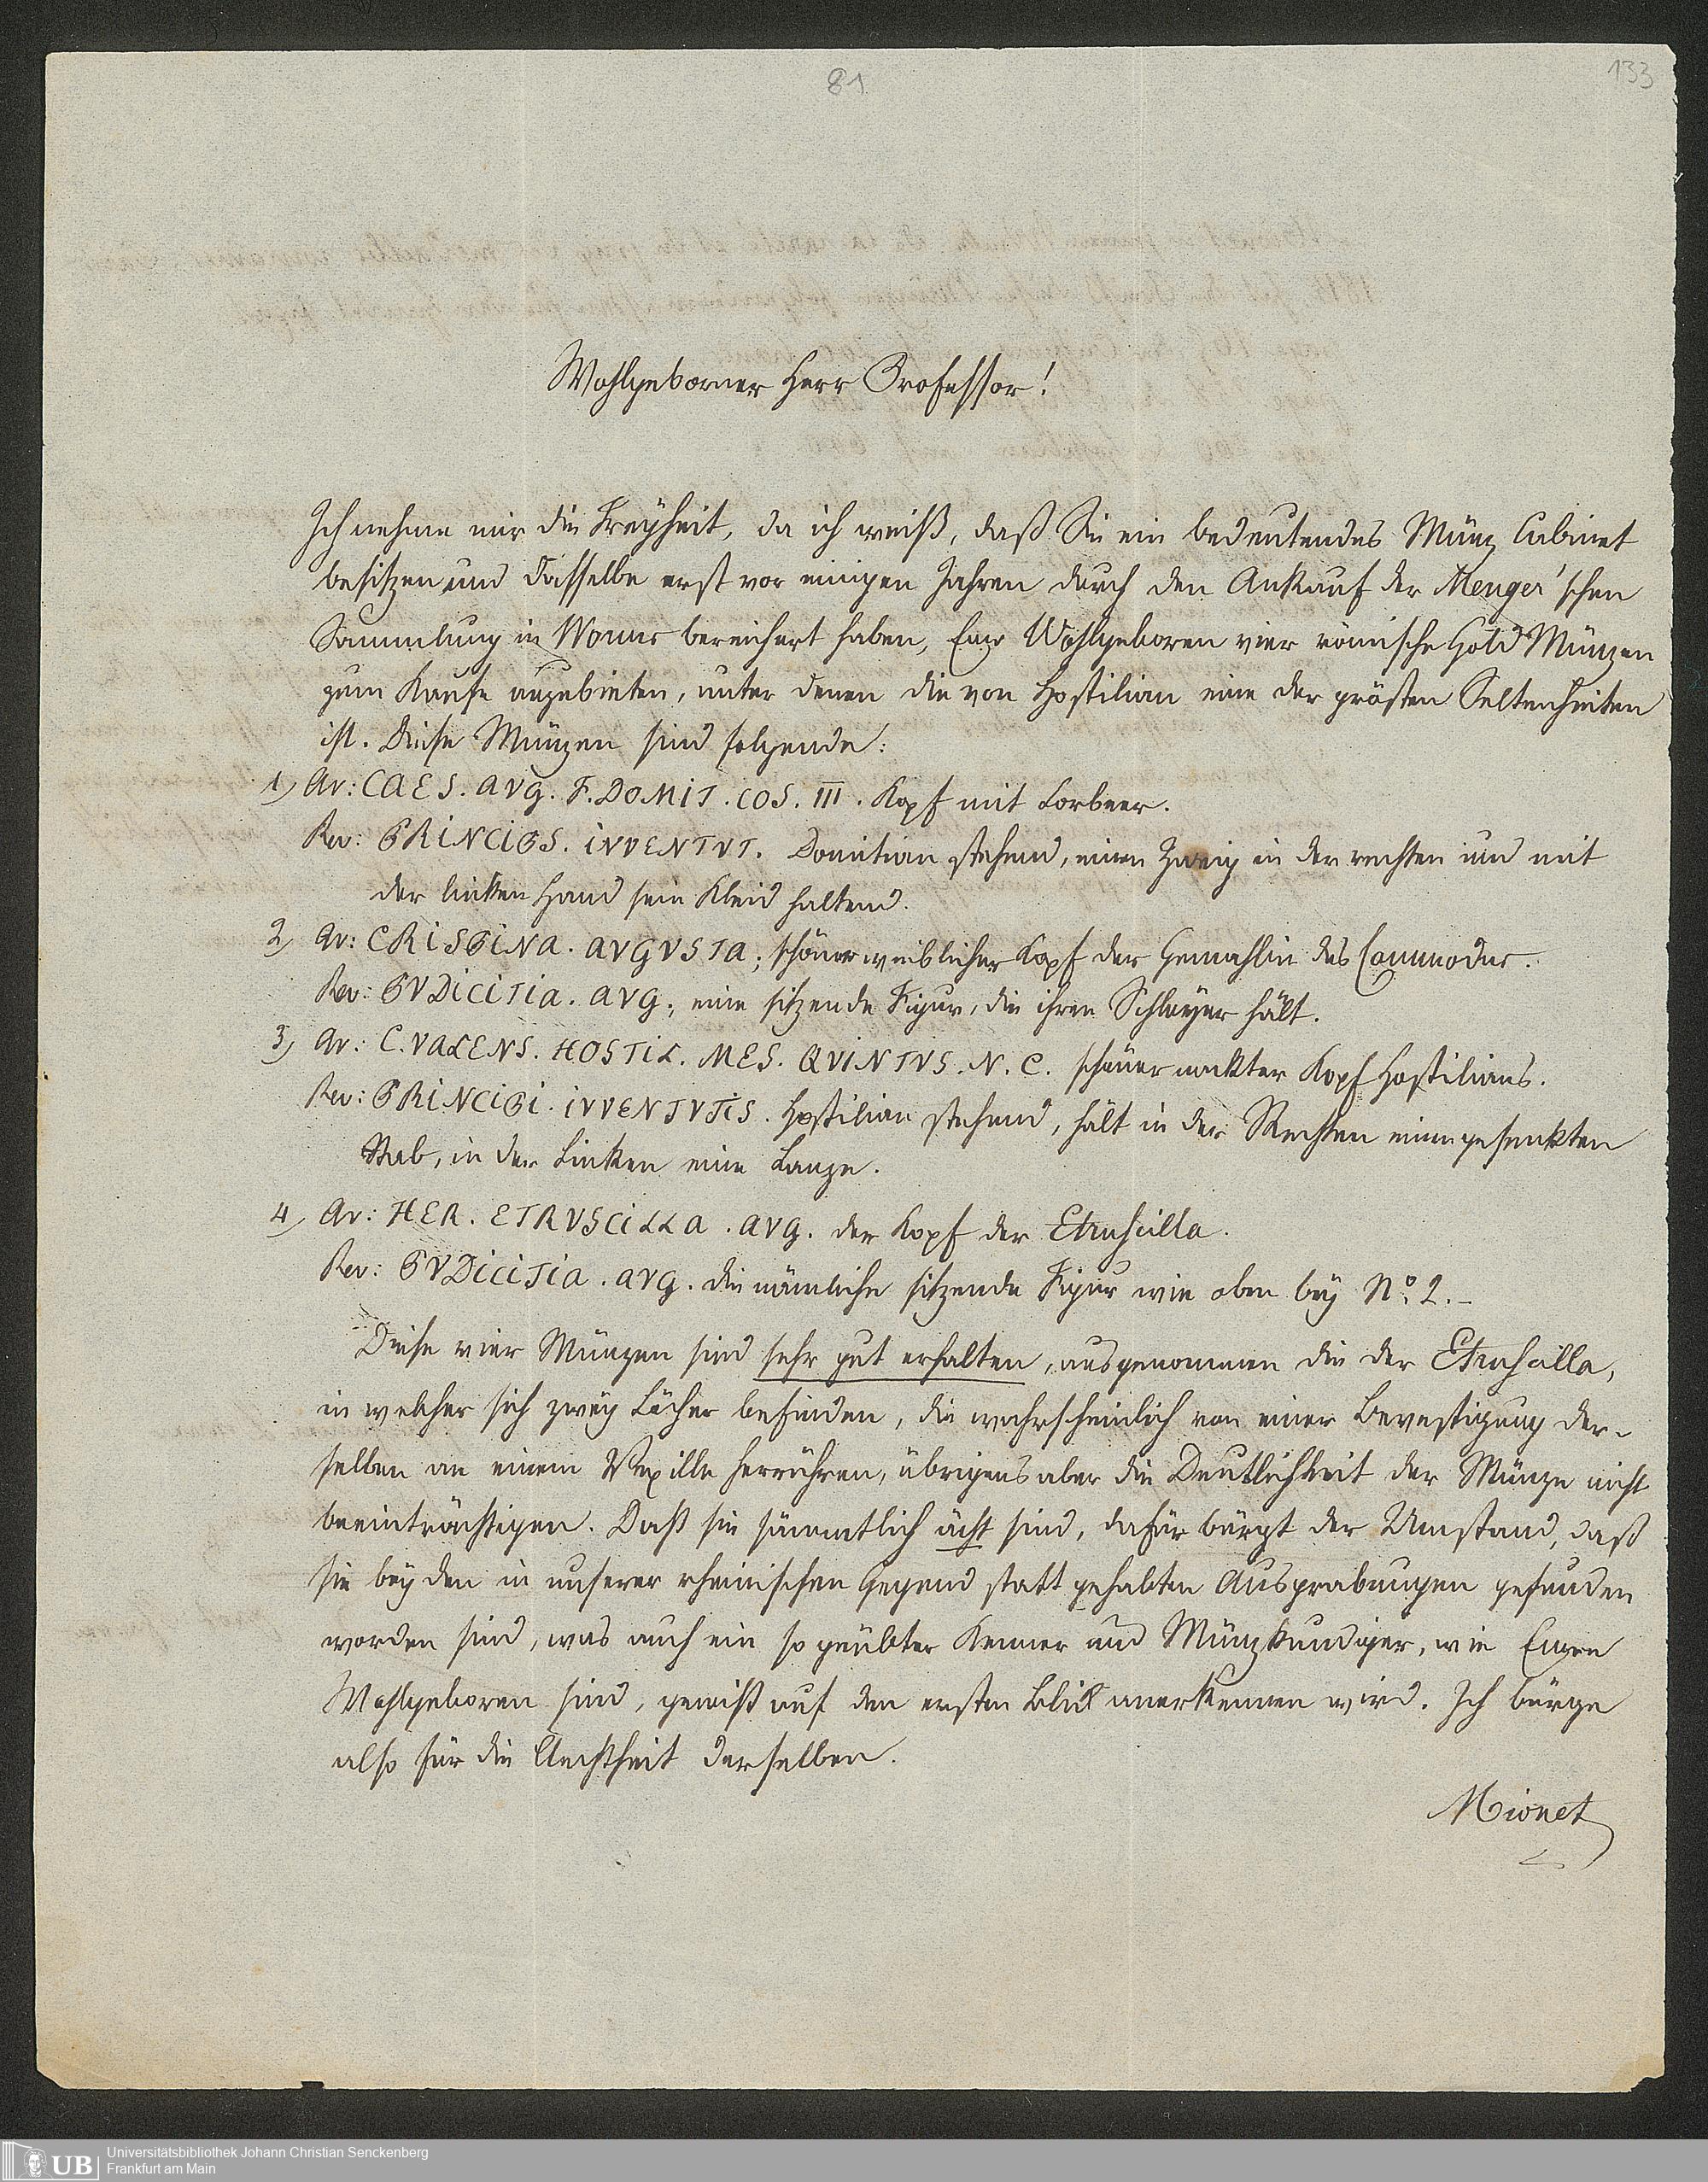 81
133
Wohlgeborner Herr Professor!
Ich nehme mir die Freyheit, da ich weiß, daß Sie ein bedeutendes Münz Cabinet
besitzen und dasselbe erst vor einigen Jahren durch den Ankauf der Menger'schen
Sammlung in Worms bereichert haben, Euer Wohlgeboren vier römische Gold Münzen
zum Kaufe anzubieten, unter denen die von Hostilian eine der grösten Seltenheiten
ist. Diese Münzen sind folgende:
1) Av: CAES. AVG. F. DOMIT. COS. III. Kopf mit Lorbeer.
Rev: PRINCIPS. IVVENTVT. Domitian stehend, einen Zweig in der rechten und mit
der linken Hand sein Kleid haltend.
2) Av: CRISPINA. AVGVSTA; schöner weiblicher Kopf der Gemahlin des Commodus.
Rev: PVDICITIA. AVG; eine sitzende Figur, die ihren Schleyer hält.
3) Av: C. VALENS. HOSTIL. MES. QVINTVS. N. C. schöner nackter Kopf Hostilians.
Rev: PRINCIPI. IVVENTVTIS. Hostilian stehend, hält in der Rechten einen gesenkten
Stab, in der Linken eine Lanze.
4) Av: HER. ETRVSCILLA. AVG. der Kopf der Etruscilla.
Rev: PVDICITIA. AVG. die nämliche sitzende Figur wie oben bey No. 2.-
Diese vier Münzen sind sehr gut erhalten, ausgenommen die der Etruscilla,
in welcher sich zwey Löcher befinden, die wahrscheinlich von einer Bevestigung der-
selben an einem Vexille herrühren, übrigens aber die Deutlichkeit der Münze nicht
beeinträchtigen. Daß sie sämmtlich ächt sind, dafür bürgt der Umstand, daß
sie bey den in unserer rheinischen Gegend statt gehabten Ausgrabungen gefunden
worden sind, was auch ein so geübter Kenner und Münzkundiger, wie Euer
Wohlgeboren sind, gewiß auf den ersten Blick anerkennen wird. Ich bürge
also für die Aechtheit derselben.
Mionet
UB Universitätsbibliothek Johann Christian Senckenberg
Frankfurt am Main